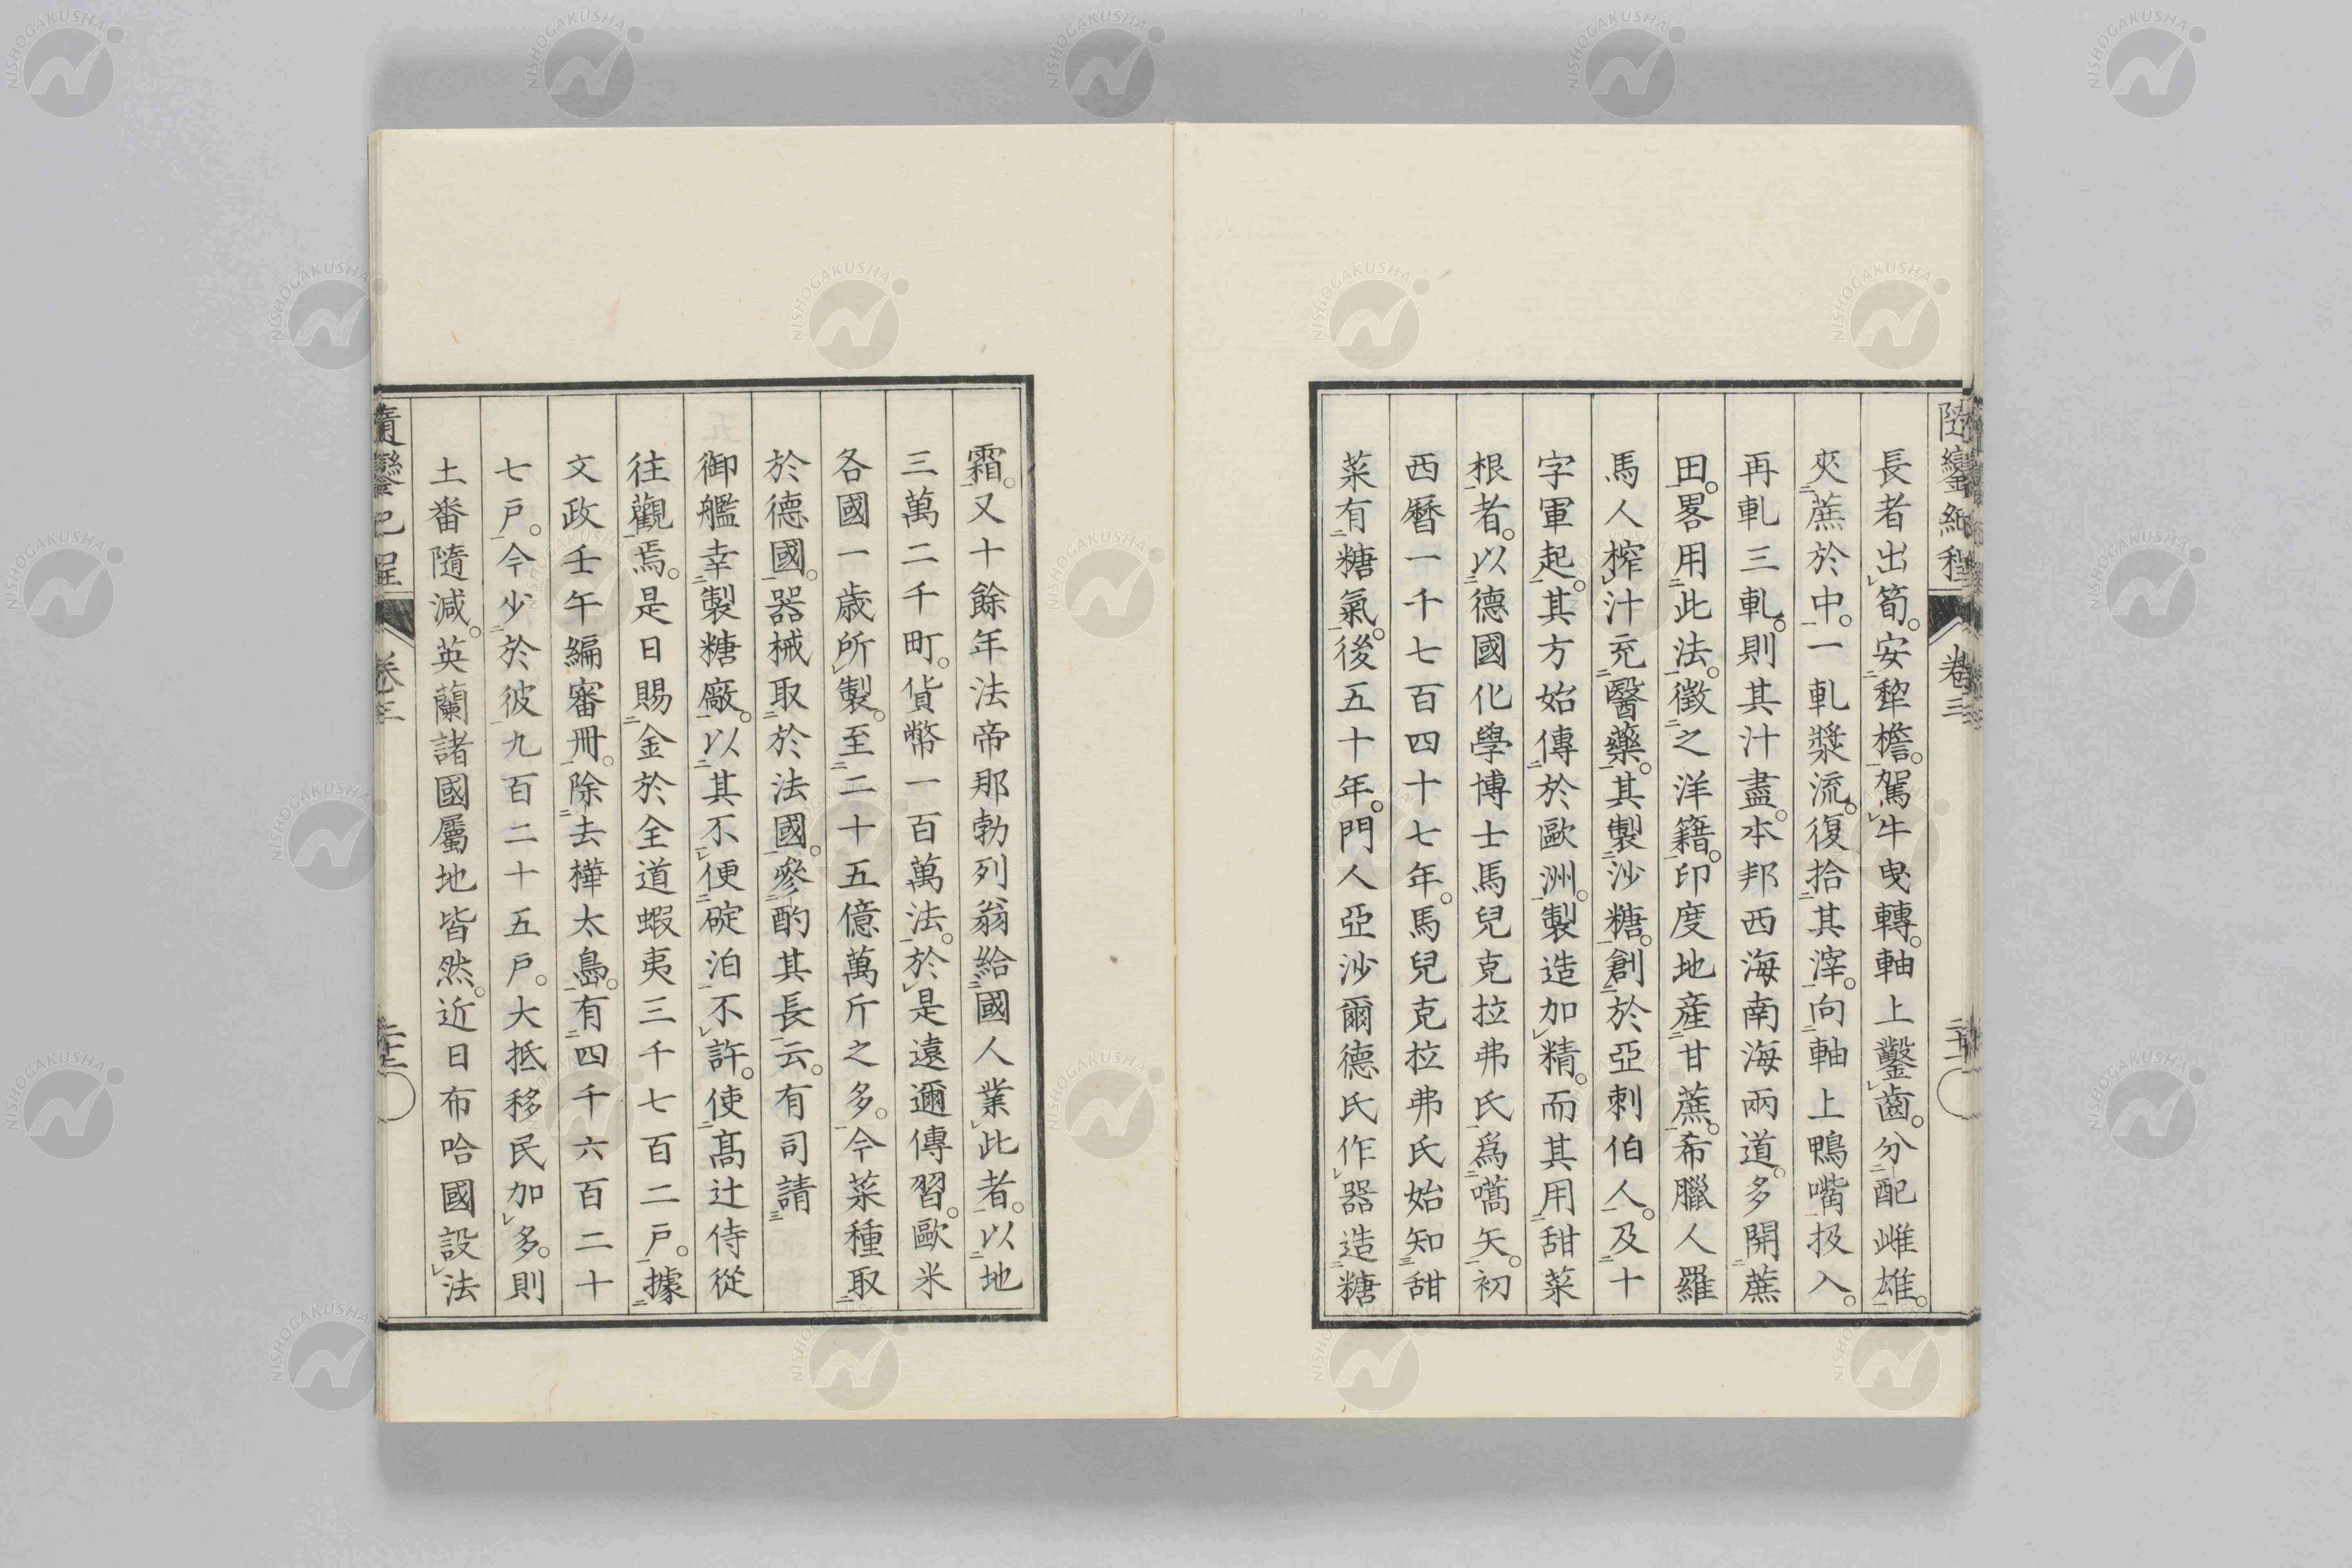 隨鑾紀程 卷三
長者出筍。安犂檐。駕牛曳轉。軸上鑿齒。分配雌雄。
夾蔗於中。一軋漿流。復拾其滓。向軸上鴨嘴扱入。
再軋三軋。則其汁盡。本邦西海南海兩道。多開蔗
田。畧用此法。徵之洋籍。印度地產甘蔗。希臘人羅
馬人榨汁充醫藥。其製沙糖。創於亞刺伯人。及十
字軍起。其方始傳於歐洲。製造加精。而其用甜菜
根者。以德國化學博士馬兒克拉弗氏。爲嚆矢。初
西曆一千七百四十七年。馬兒克拉弗氏始知甜
菜有糖氣。後五十年。門人亞沙爾德氏作器造糖
霜。又十餘年法帝那勃列翁給國人業此者。以地
三萬二千町。貨幣一百萬法。於是遠邇傳習。歐米
各國一歲所製。至二十五億萬斤之多。今菜種取
於德國。器械取於法國。參酌其長云。有司請
御艦幸製糖廠。以其不便碇泊。不許。使髙辻侍從
往觀焉。是日賜金於全道蝦夷三千七百二戶。據
文政壬午編審冊。除去樺太島。有四千六百二十
七戶。今少於彼九百二十五戶。大抵移民加多。則
土番隨減。英蘭諸國屬地皆然。近日布哈國設法
隨鑾紀程 卷三